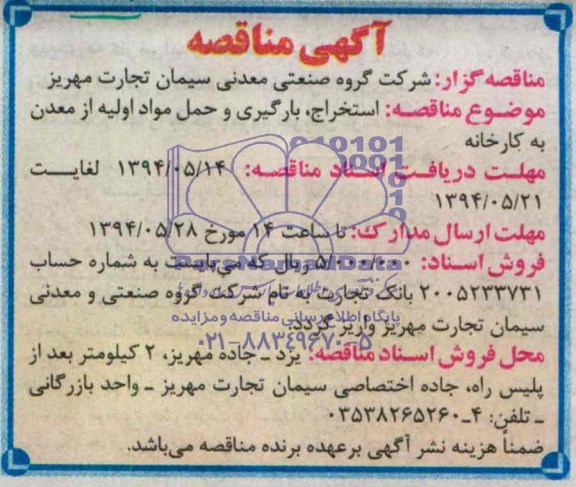 آگهی مناقصه
مناقصه گزار: شرکت گروه صنعتی معدنی سیمان تجارت مهریز
موضوع مناقصه: استخراج، بارگیری و حمل مواد اولیه از معدن
به کارخانه
مهلت دریافت اسناد مناقصه: ۱۳۹۴/۰۵/۱۴ لغایت
۱۳۹۴/۰۵/۲۱
مهلت ارسال مدارک: تا ساعت ۱۴ مورخ ۱۳۹۴/۰۵/۲۸
فروش اسناد: ۵/۰۰۰/۰۰۰ ریال که می‌بایست به شماره حساب
۲۰۰۵۲۳۳۷۳۱ بانک تجارت به نام شرکت گروه صنعتی و معدنی
سیمان تجارت مهریز واریز گردد.
پایگاه اطلاع رسانی مناقصه و مزایده
۰۲۱-۸۸۳۴۹۶۷۰-۵
محل فروش اسناد مناقصه: یزد ـ جاده مهریز، ۲ کیلومتر بعد از
پلیس راه، جاده اختصاصی سیمان تجارت مهریز ـ واحد بازرگانی
ـ تلفن: ۴ـ۰۳۵۳۸۲۶۵۲۶۰
ضمناً هزینه نشر آگهی برعهده برنده مناقصه می‌باشد.